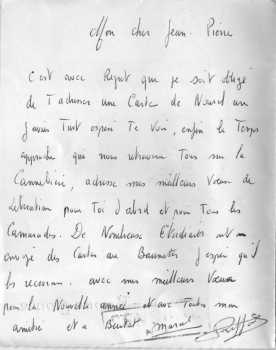 Mon cher Jean-Pierre
C'est avec Regret que je soit obligé
de T'adresser une Carte de Nouvel an
J'avais Tant espéré Te voir, enfin le Temps
approche qui nous retrouvera Tous sur la
Cannebière, adresse mes meilleurs Vœux de
Libération pour Toi d'abord et pour Tous les
Camarades. De Nombreux Etudiants ont
envoyé des Cartes aux Baumettes J'espère qu'il
les recevrons. avec mes meilleurs Vœux
pour la Nouvelle année et avec Toutes mon
amitié et a Bientot